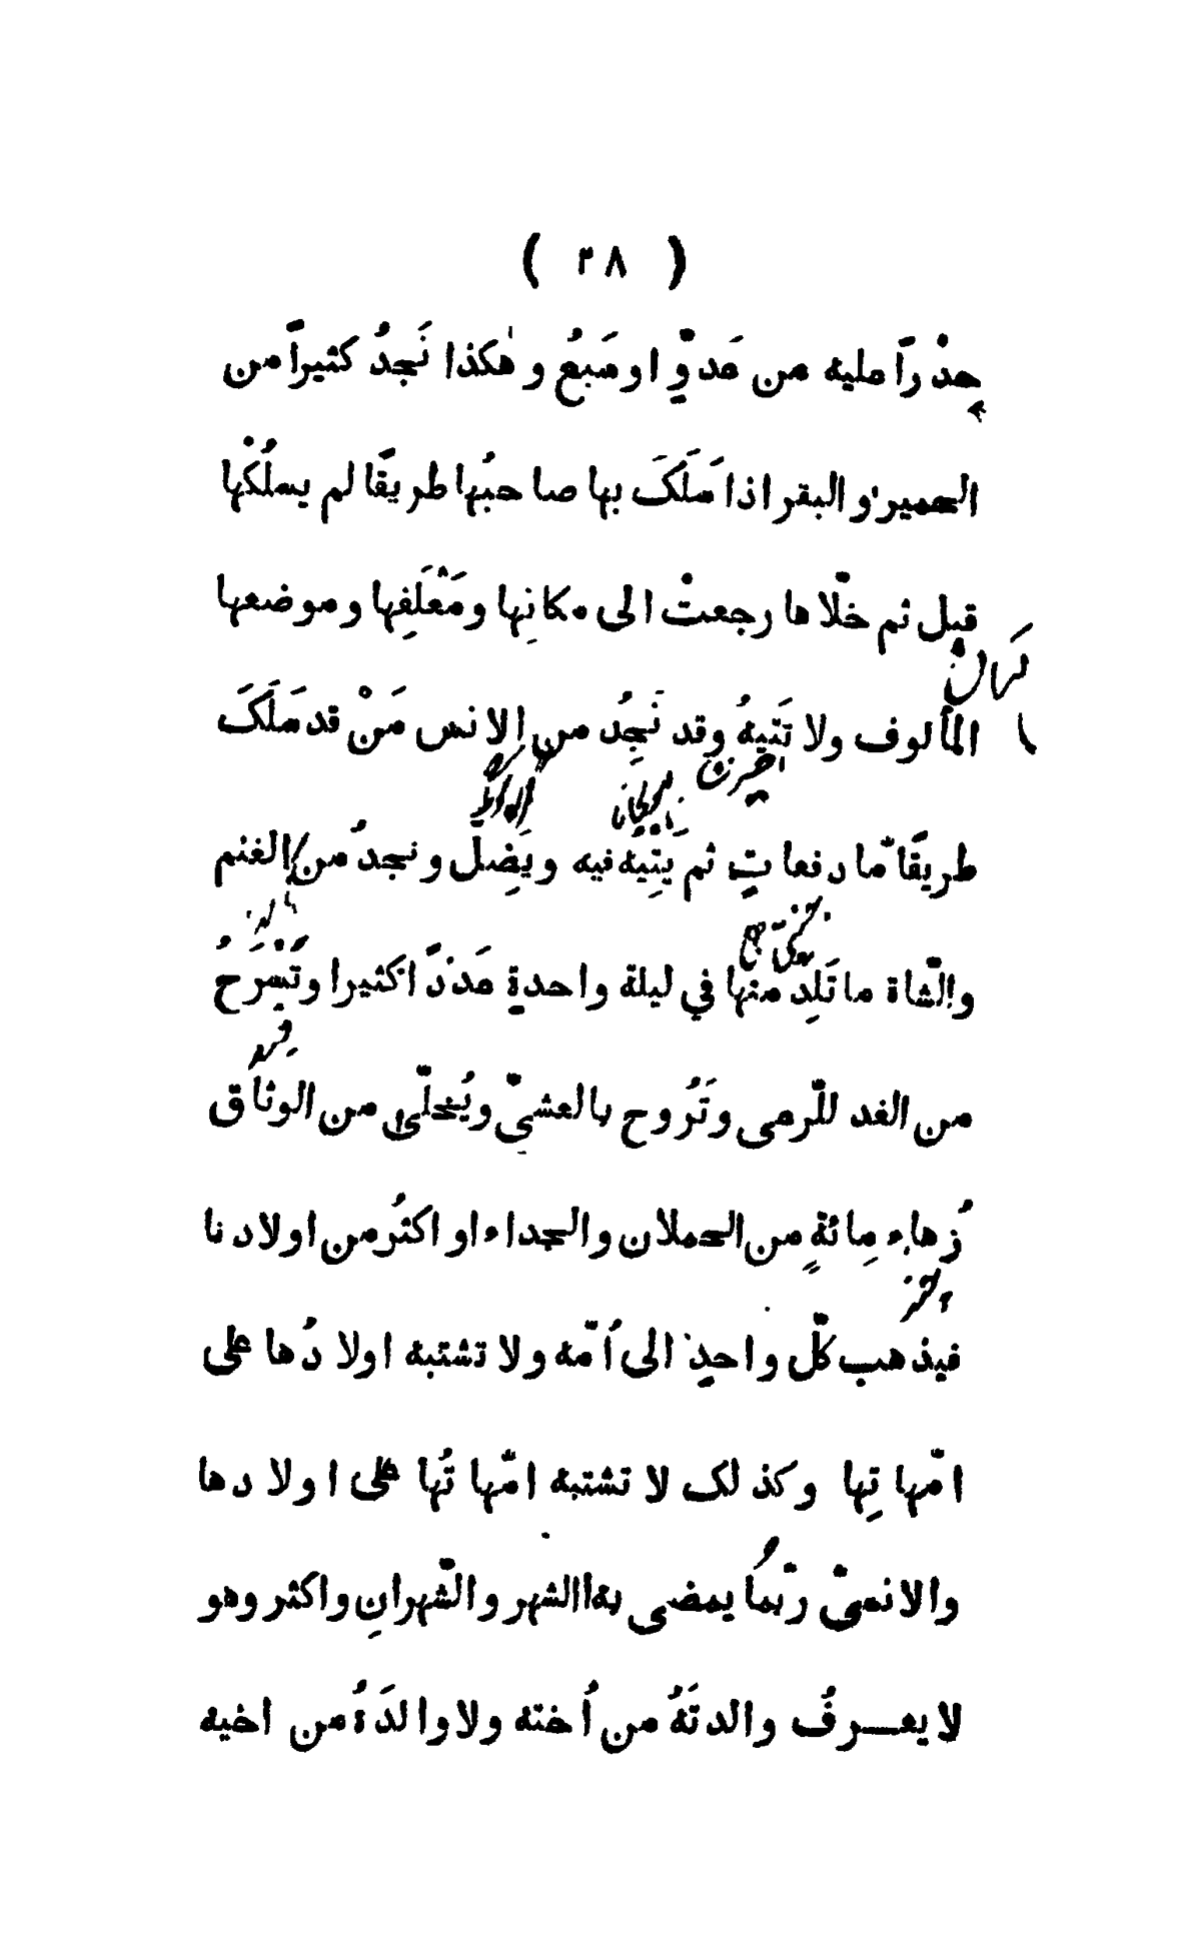 ( ٢٨ )
حِذْراً عليه من عَدوٍّ او سَبُعٍ و هٰكذا نَجِدُ كثيراً من
الحمير و البقر اذا سَلَكَ بها صاحبُها طريقًا لم يسلُكْها
قبل ثم خلّا ها رجعتْ الى مكانِها ومَعْلَفِها وموضعها
المألوف ولا تَتيهُ وقد نَجِدُ من الانس مَنْ قد سَلَكَ
طريقًا مّا دفعاتٍ ثم يَتِيه فيه ويَضِلّ ونجدُ من الغنم
والشّاة ما تَلِدُ منها في ليلة واحدةٍ عَدَدًا كثيرا وتَسْرَحُ
من الغد للّرعى وتَرُوح بالعشيّ ويُخلّى من الوثاق
زُهاء مِائةٍ من الحملان والجداء او اكثرُ من اولادنا
فيذهب كلّ واحدٍ الى أُمّه ولا تشتبه اولادُها على
امّهاتِها وكذلك لا تشتبه امّهاتُها على اولادها
والانسىّ ربّما يمضى به الشهر والشّهرانِ واكثر وهو
لا يعــرفُ والدتَهُ من أُخته ولا والدَهُ من اخيه